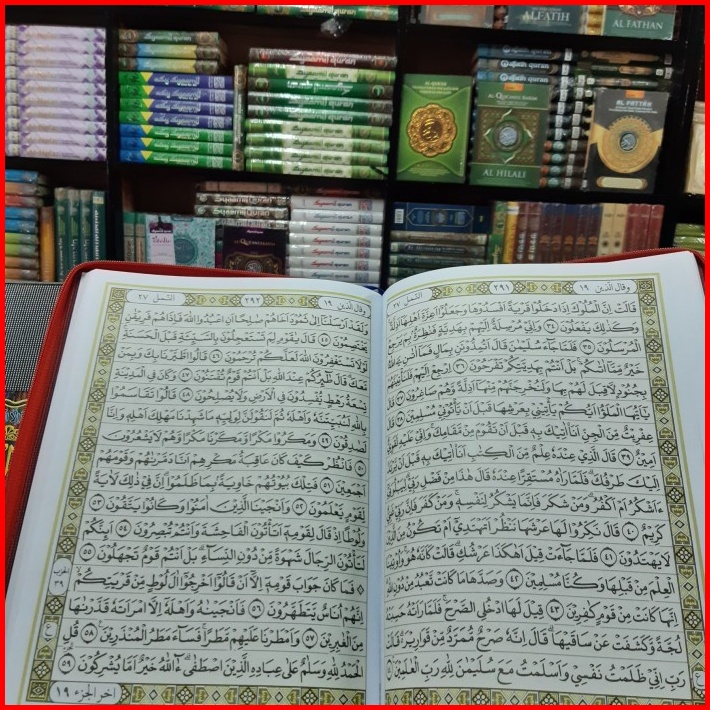 ALFATIH
AL FATHAN
AL QUR'AN
AL HILALI
AL FATTAH
وقال الذين ١٩
٢٩١
النمل ٢٧
قَالَتْ اِنَّ الْمُلُوْكَ اِذَا دَخَلُوْا قَرْيَةً اَفْسَدُوْهَا وَجَعَلُوْٓا اَعِزَّةَ اَهْلِهَآ اَذِلَّةً
وَكَذٰلِكَ يَفْعَلُوْنَ ٣٤ وَاِنِّيْ مُرْسِلَةٌ اِلَيْهِمْ بِهَدِيَّةٍ فَنٰظِرَةٌ ۢبِمَ يَرْجِعُ
الْمُرْسَلُوْنَ ٣٥ فَلَمَّا جَآءَ سُلَيْمٰنَ قَالَ اَتُمِدُّوْنَنِ بِمَالٍ فَمَآ اٰتٰىنِۦَ اللّٰهُ
خَيْرٌ مِّمَّآ اٰتٰىكُمْۚ بَلْ اَنْتُمْ بِهَدِيَّتِكُمْ تَفْرَحُوْنَ ٣٦ اِرْجِعْ اِلَيْهِمْ فَلَنَأْتِيَنَّهُمْ
بِجُنُوْدٍ لَّا قِبَلَ لَهُمْ بِهَا وَلَنُخْرِجَنَّهُمْ مِّنْهَآ اَذِلَّةً وَّهُمْ صَاغِرُوْنَ ٣٧ قَالَ
يٰٓاَيُّهَا الْمَلَؤُا اَيُّكُمْ يَأْتِيْنِيْ بِعَرْشِهَا قَبْلَ اَنْ يَّأْتُوْنِيْ مُسْلِمِيْنَ ٣٨ قَالَ
عِفْرِيْتٌ مِّنَ الْجِنِّ اَنَا۠ اٰتِيْكَ بِهٖ قَبْلَ اَنْ تَقُوْمَ مِنْ مَّقَامِكَۚ وَاِنِّيْ عَلَيْهِ لَقَوِيٌّ
اَمِيْنٌ ٣٩ قَالَ الَّذِيْ عِنْدَهٗ عِلْمٌ مِّنَ الْكِتٰبِ اَنَا۠ اٰتِيْكَ بِهٖ قَبْلَ اَنْ يَّرْتَدَّ
اِلَيْكَ طَرْفُكَۗ فَلَمَّا رَاٰهُ مُسْتَقِرًّا عِنْدَهٗ قَالَ هٰذَا مِنْ فَضْلِ رَبِّيْۗ لِيَبْلُوَنِيْٓ
ءَاَشْكُرُ اَمْ اَكْفُرُۗ وَمَنْ شَكَرَ فَاِنَّمَا يَشْكُرُ لِنَفْسِهٖۚ وَمَنْ كَفَرَ فَاِنَّ رَبِّيْ غَنِيٌّ
كَرِيْمٌ ٤٠ قَالَ نَكِّرُوْا لَهَا عَرْشَهَا نَنْظُرْ اَتَهْتَدِيْٓ اَمْ تَكُوْنُ مِنَ الَّذِيْنَ
لَا يَهْتَدُوْنَ ٤١ فَلَمَّا جَآءَتْ قِيْلَ اَهٰكَذَا عَرْشُكِۗ قَالَتْ كَاَنَّهٗ هُوَۚ وَاُوْتِيْنَا
الْعِلْمَ مِنْ قَبْلِهَا وَكُنَّا مُسْلِمِيْنَ ٤٢ وَصَدَّهَا مَا كَانَتْ تَّعْبُدُ مِنْ دُوْنِ اللّٰهِۗ
اِنَّهَا كَانَتْ مِنْ قَوْمٍ كٰفِرِيْنَ ٤٣ قِيْلَ لَهَا ادْخُلِى الصَّرْحَۚ فَلَمَّا رَاَتْهُ حَسِبَتْهُ
لُجَّةً وَّكَشَفَتْ عَنْ سَاقَيْهَاۗ قَالَ اِنَّهٗ صَرْحٌ مُّمَرَّدٌ مِّنْ قَوَارِيْرَۗ قَالَتْ
رَبِّ اِنِّيْ ظَلَمْتُ نَفْسِيْ وَاَسْلَمْتُ مَعَ سُلَيْمٰنَ لِلّٰهِ رَبِّ الْعٰلَمِيْنَ
وقال الذين ١٩
٢٩٢
النمل ٢٧
وَلَقَدْ اَرْسَلْنَآ اِلٰى ثَمُوْدَ اَخَاهُمْ صٰلِحًا اَنِ اعْبُدُوا اللّٰهَ فَاِذَا هُمْ فَرِيْقٰنِ
يَخْتَصِمُوْنَ ٤٥ قَالَ يٰقَوْمِ لِمَ تَسْتَعْجِلُوْنَ بِالسَّيِّئَةِ قَبْلَ الْحَسَنَةِۚ
لَوْلَا تَسْتَغْفِرُوْنَ اللّٰهَ لَعَلَّكُمْ تُرْحَمُوْنَ ٤٦ قَالُوا اطَّيَّرْنَا بِكَ وَبِمَنْ
مَّعَكَۗ قَالَ طٰۤىِٕرُكُمْ عِنْدَ اللّٰهِ بَلْ اَنْتُمْ قَوْمٌ تُفْتَنُوْنَ ٤٧ وَكَانَ فِى الْمَدِيْنَةِ
تِسْعَةُ رَهْطٍ يُّفْسِدُوْنَ فِى الْاَرْضِ وَلَا يُصْلِحُوْنَ ٤٨ قَالُوْا تَقَاسَمُوْا
بِاللّٰهِ لَنُبَيِّتَنَّهٗ وَاَهْلَهٗ ثُمَّ لَنَقُوْلَنَّ لِوَلِيِّهٖ مَا شَهِدْنَا مَهْلِكَ اَهْلِهٖ وَاِنَّا
لَصٰدِقُوْنَ ٤٩ وَمَكَرُوْا مَكْرًا وَّمَكَرْنَا مَكْرًا وَّهُمْ لَا يَشْعُرُوْنَ
٥٠ فَانْظُرْ كَيْفَ كَانَ عَاقِبَةُ مَكْرِهِمْ اَنَّا دَمَّرْنٰهُمْ وَقَوْمَهُمْ
اَجْمَعِيْنَ ٥١ فَتِلْكَ بُيُوْتُهُمْ خَاوِيَةً ۢبِمَا ظَلَمُوْاۗ اِنَّ فِيْ ذٰلِكَ لَاٰيَةً
لِّقَوْمٍ يَّعْلَمُوْنَ ٥٢ وَاَنْجَيْنَا الَّذِيْنَ اٰمَنُوْا وَكَانُوْا يَتَّقُوْنَ ٥٣
وَلُوْطًا اِذْ قَالَ لِقَوْمِهٖٓ اَتَأْتُوْنَ الْفَاحِشَةَ وَاَنْتُمْ تُبْصِرُوْنَ ٥٤ اَىِٕنَّكُمْ
لَتَأْتُوْنَ الرِّجَالَ شَهْوَةً مِّنْ دُوْنِ النِّسَآءِۗ بَلْ اَنْتُمْ قَوْمٌ تَجْهَلُوْنَ ٥٥
۞ فَمَا كَانَ جَوَابَ قَوْمِهٖٓ اِلَّآ اَنْ قَالُوْٓا اَخْرِجُوْٓا اٰلَ لُوْطٍ مِّنْ قَرْيَتِكُمْۙ
اِنَّهُمْ اُنَاسٌ يَّتَطَهَّرُوْنَ ٥٦ فَاَنْجَيْنٰهُ وَاَهْلَهٗٓ اِلَّا امْرَاَتَهٗ قَدَّرْنٰهَا
مِنَ الْغٰبِرِيْنَ ٥٧ وَاَمْطَرْنَا عَلَيْهِمْ مَّطَرًاۚ فَسَآءَ مَطَرُ الْمُنْذَرِيْنَ ٥٨ قُلِ
الْحَمْدُ لِلّٰهِ وَسَلٰمٌ عَلٰى عِبَادِهِ الَّذِيْنَ اصْطَفٰىۗ ءٰۤاللّٰهُ خَيْرٌ اَمَّا يُشْرِكُوْنَ ٥٩
الحزب
٣٩
اخر الجزء ١٩